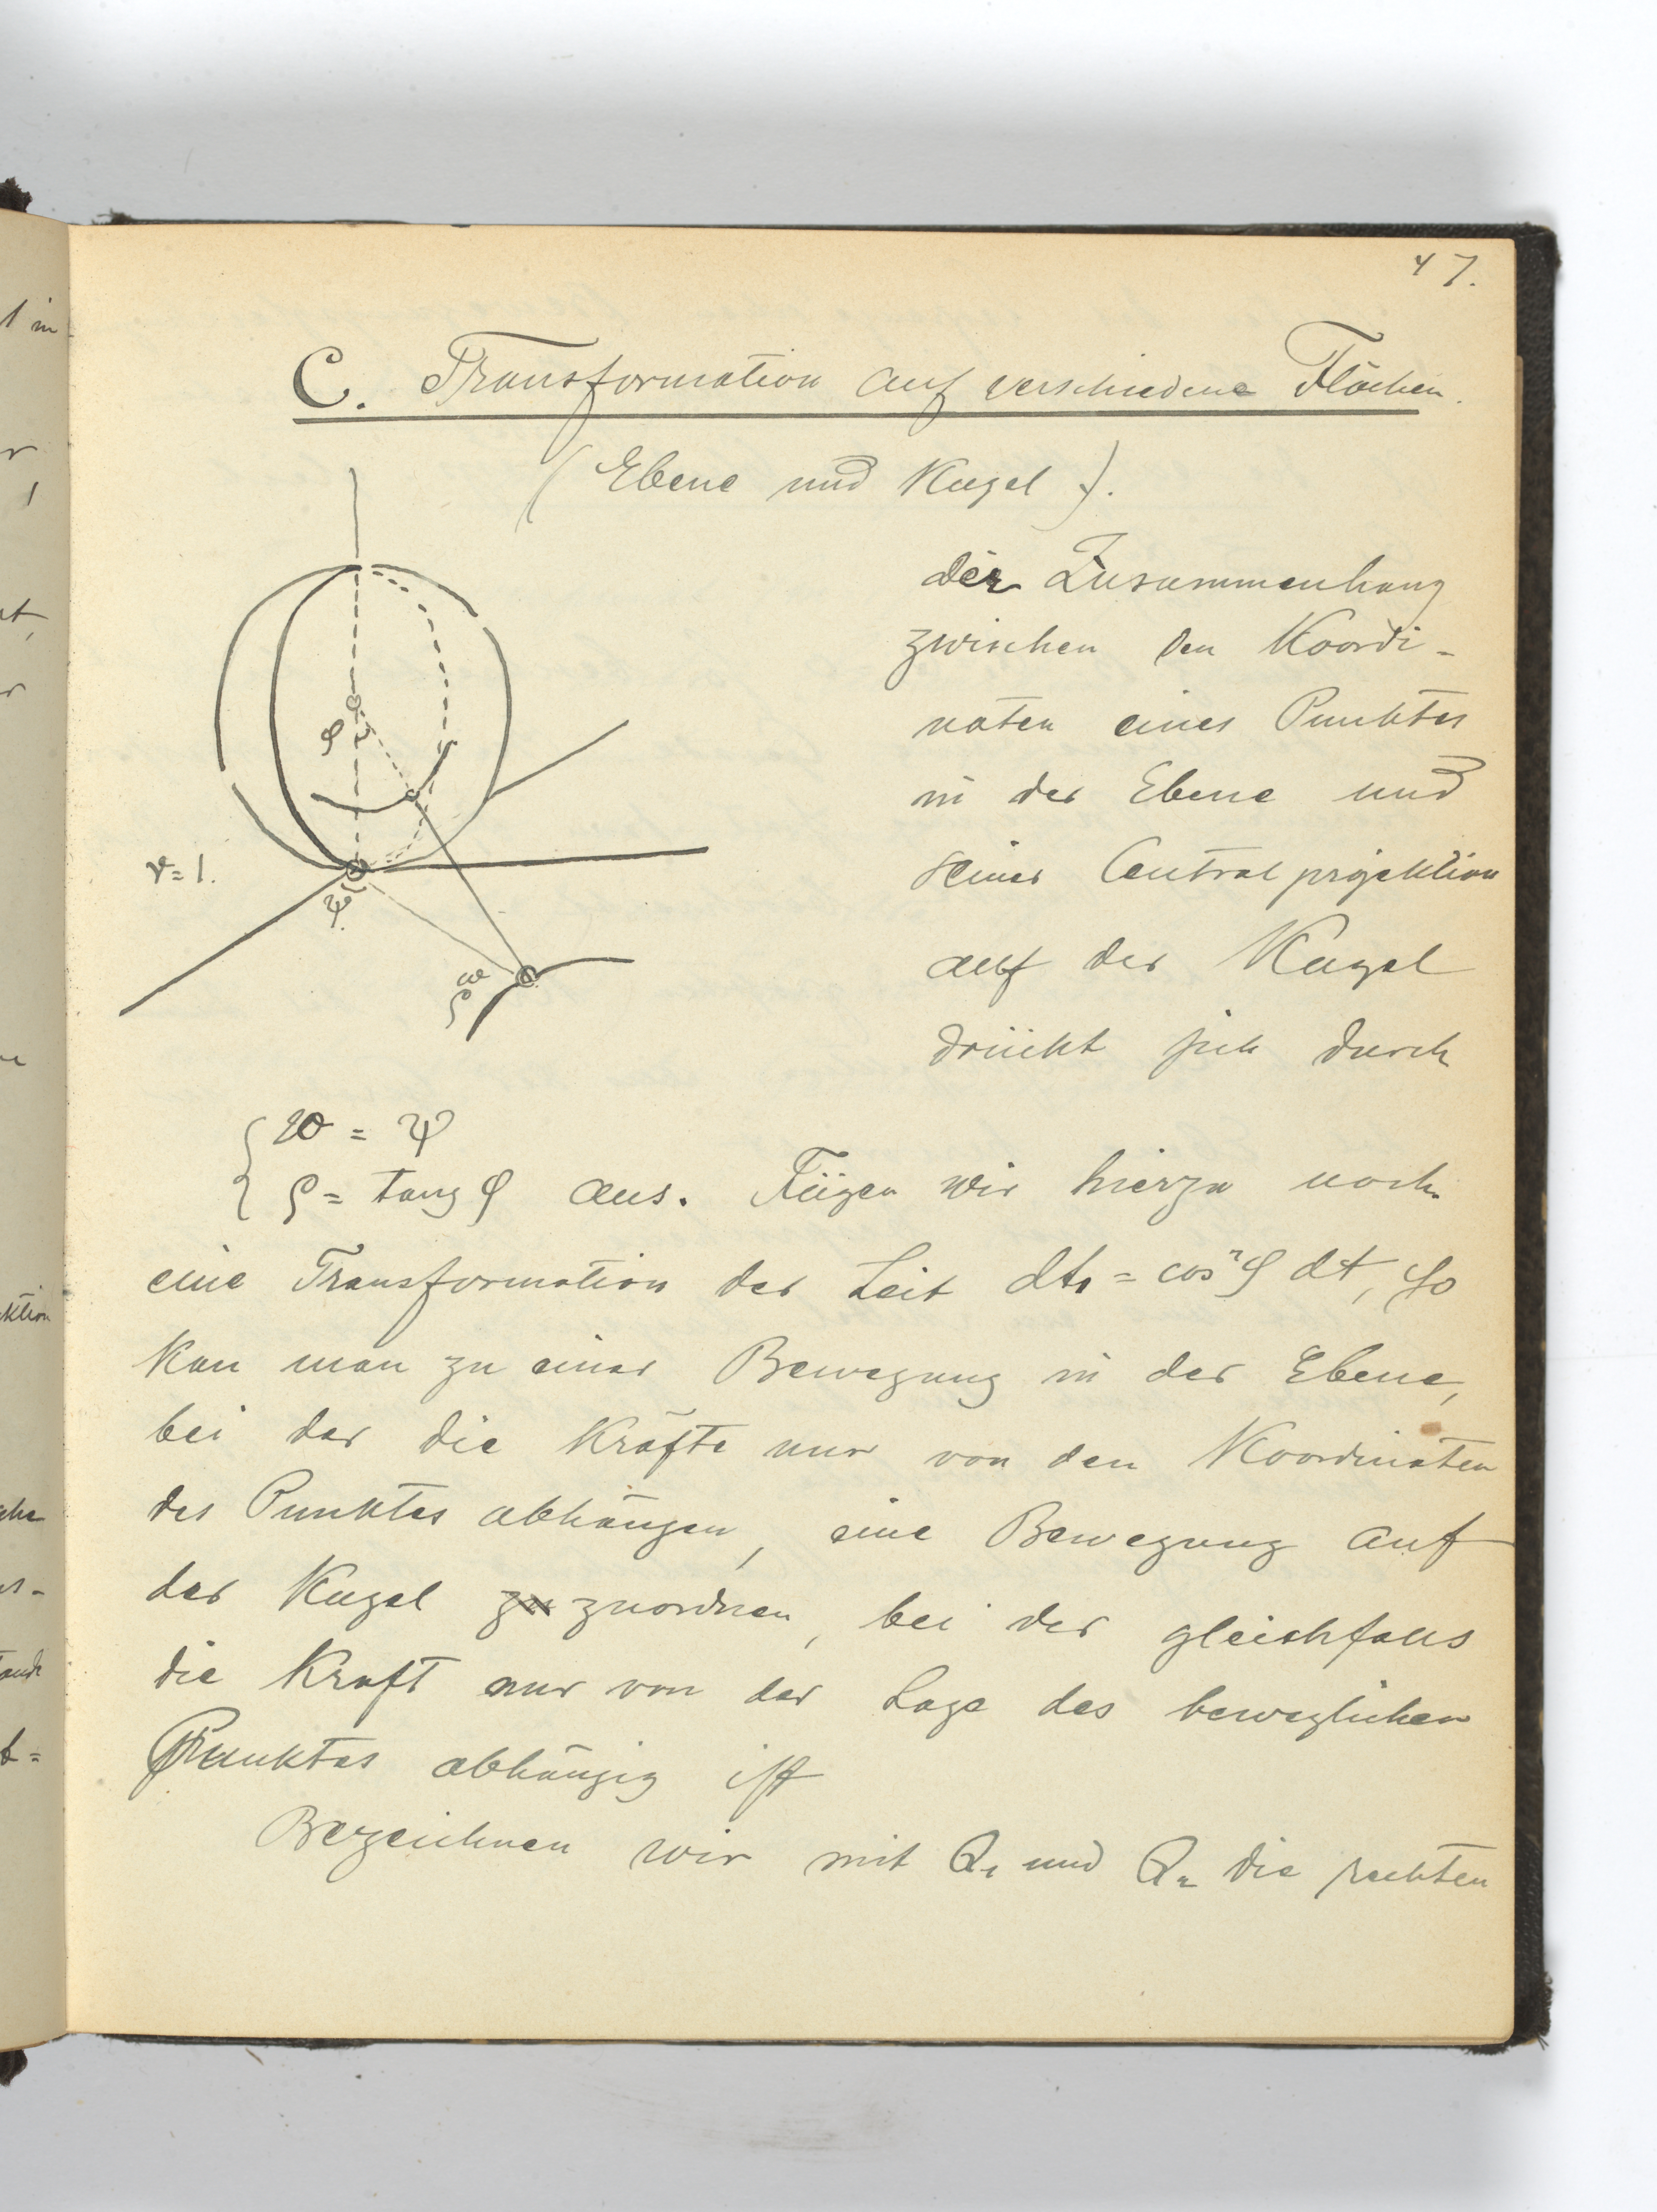 47.
C. Transformation auf verschiedene Flächen.
(Ebene und Kugel).
der Zusammenhang
zwischen den Koordi-
naten eines Punktes
in der Ebene und
seiner Centralprojektion
auf der Kugel
drückt sich durch
φ
r=1.
ψ.
ω
ρ
ω = ψ
ρ = tang φ aus. Fügen wir hierzu noch
eine Transformation der Zeit dt₁ = cos²φ dt, so
kan man zu einer Bewegung in der Ebene,
bei der die Kräfte nur von den Koordinaten
des Punktes abhängen, eine Bewegung auf
der Kugel zu zuordnen, bei der gleichfalls
die Kraft nur von der Lage des beweglichen
Punktes abhängig ist
Bezeichnen wir mit Q₁ und Q₂ die rechten